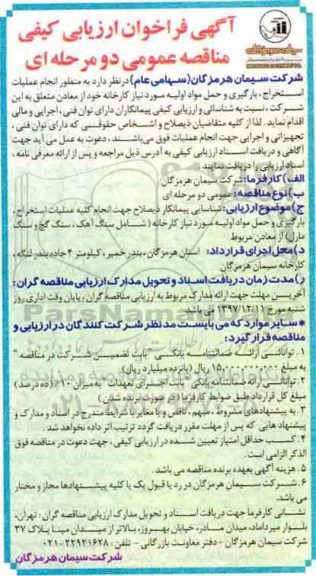 آگهی فراخوان ارزیابی کیفی
مناقصه عمومی دو مرحله ای
شرکت سیمان هرمزگان (سهامی عام) در نظر دارد به منظور انجام عملیات
استخراج، بارگیری و حمل مواد اولیه مورد نیاز کارخانه خود از معادن متعلق به این
شرکت، نسبت به شناسائی و ارزیابی کیفی پیمانکاران دارای توان فنی، اجرایی و مالی
اقدام نماید. لذا از کلیه متقاضیان ذیصلاح و اشخاص حقوقی که دارای توان فنی،
تجهیزاتی و اجرایی جهت انجام عملیات فوق می‌باشند، دعوت به عمل می آید جهت
آگاهی و دریافت اسناد ارزیابی کیفی به آدرس ذیل مراجعه و پس از ارائه معرفی نامه،
اسناد ارزیابی را دریافت نمایند
الف) کارفرما: شرکت سیمان هرمزگان
ب) نوع مناقصه: عمومی دو مرحله ای
ج) موضوع ارزیابی: شناسایی پیمانکار ذیصلاح جهت انجام کلیه عملیات استخراج،
بارگیری و حمل مواد اولیه مورد نیاز کارخانه (شامل سنگ آهک، سنگ گچ و سنگ
مارل) از معادن مربوط
د) محل اجرای قرارداد: استان هرمزگان، بندر خمیر، کیلومتر ۴ جاده بندر لنگه،
کارخانه سیمان هرمزگان
ر) مدت زمان دریافت اسناد و تحویل مدارک ارزیابی مناقصه گران:
آخرین مهلت جهت ارائه مدارک مربوط به ارزیابی مناقصه گران، پایان وقت اداری روز
شنبه مورخ ۱۳۹۷/۱۲/۱۱ می باشد
* سایر مواردی که می بایست مد نظر شرکت کنندگان در ارزیابی و
مناقصه قرار گیرد:
۱. توانائی ارائه ضمانتنامه بانکی "بابت تضمین شرکت در مناقصه"
به مبلغ ۱۵،۰۰۰،۰۰۰،۰۰۰ ریال (پانزده میلیارد ریال)
۲. توانائی ارائه ضمانتنامه بانکی "بابت اجرای تعهدات" به میزان ۱۰٪ (ده درصد)
مبلغ کل قرارداد طبق ضوابط کارفرما (در صورت برنده شدن)
۳. به پیشنهادهای مشروط، مبهم، ناقص و یا مغایر با شرایط مندرج در اسناد و مدارک و
پیشنهاد هایی که پس از مهلت مقرر دریافت گردد ترتیب اثر داده نخواهد شد.
۴. کسب حداقل امتیاز تعیین شده در ارزیابی کیفی، جهت دعوت در مناقصه فوق
الذکر الزامی است.
۵. هزینه آگهی بعهده برنده مناقصه می باشد.
۶. شرکت سیمان هرمزگان در رد یا قبول یک یا کلیه پیشنهادها مجاز و مختار
می باشد.
نشانی کارفرما جهت دریافت اسناد و تحویل مدارک ارزیابی مناقصه گران: تهران،
بلوار میرداماد، میدان مادر، خیابان بهروز، بالاتر از میدان مینا پلاک ۳۷
شرکت سیمان هرمزگان - دفتر معاونت بازرگانی - تلفن: ۲۲۹۲۱۶۲۸-۰۲۱
شرکت سیمان هرمزگان